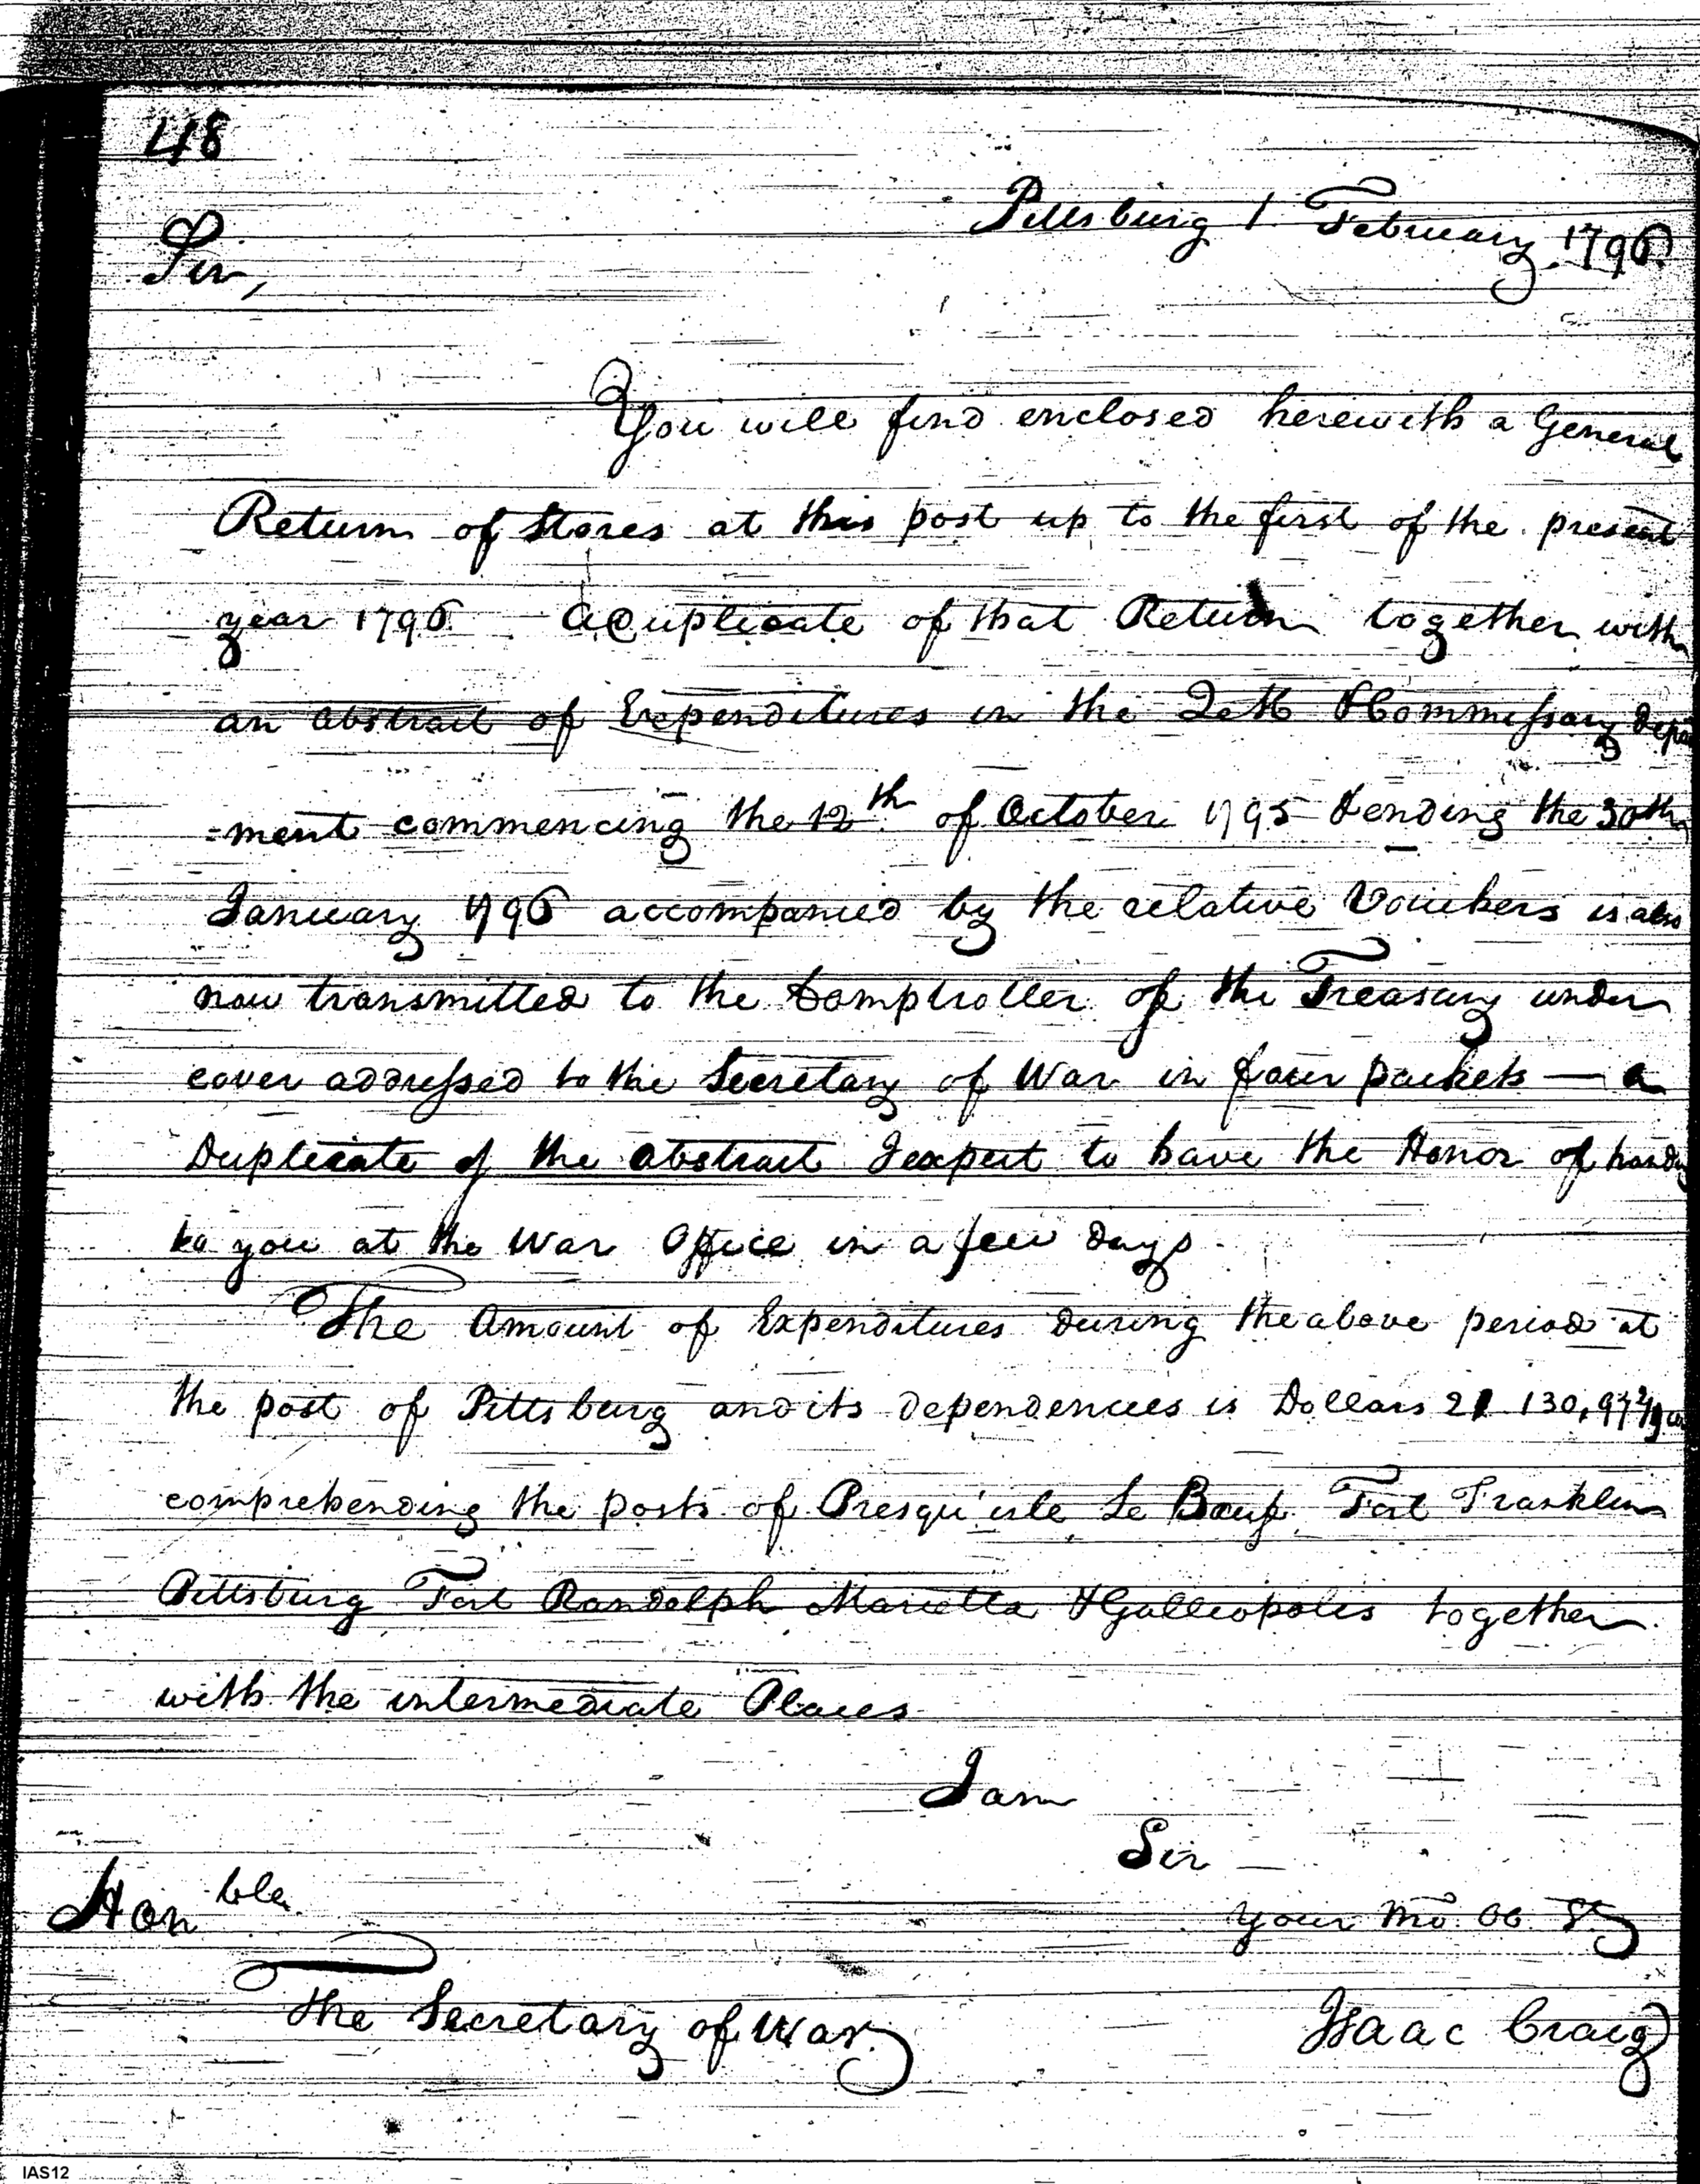 48
Pittsburg 1 February 1796
Sir,
You will find enclosed herewith a General
Return of Stores at this post up to the first of the present
year 1796 a Duplicate of that Return together with
an abstract of Expenditures in the & Commissary depart
=ment commencing the 12th of October 1795 & ending the 30th
January 1796 accompanied by the relative Vouchers is also
now transmitted to the Comptroller of the Treasury under
cover addressed to the Secretary of War in four packets — a
Duplicate of the abstract I expect to have the Honor of handing
to you at the War Office in a few days.
The Amount of Expenditures during the above period at
the post of Pittsburg and its dependencies is Dollars 21 130,
comprehending the posts of Presqu'isle Le Beuf, Fort Franklin
Pittsburg Fort Randolph Marietta & Galliopolis together
with the intermediate Places
I am
Sir
Honble
Your Mo Ob St
The Secretary of War.
Isaac Craig
IAS12